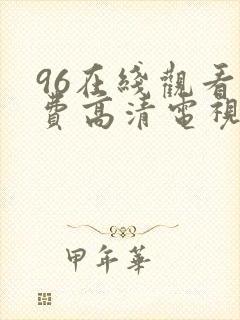 96在綫觀看
費高清電視
甲午華